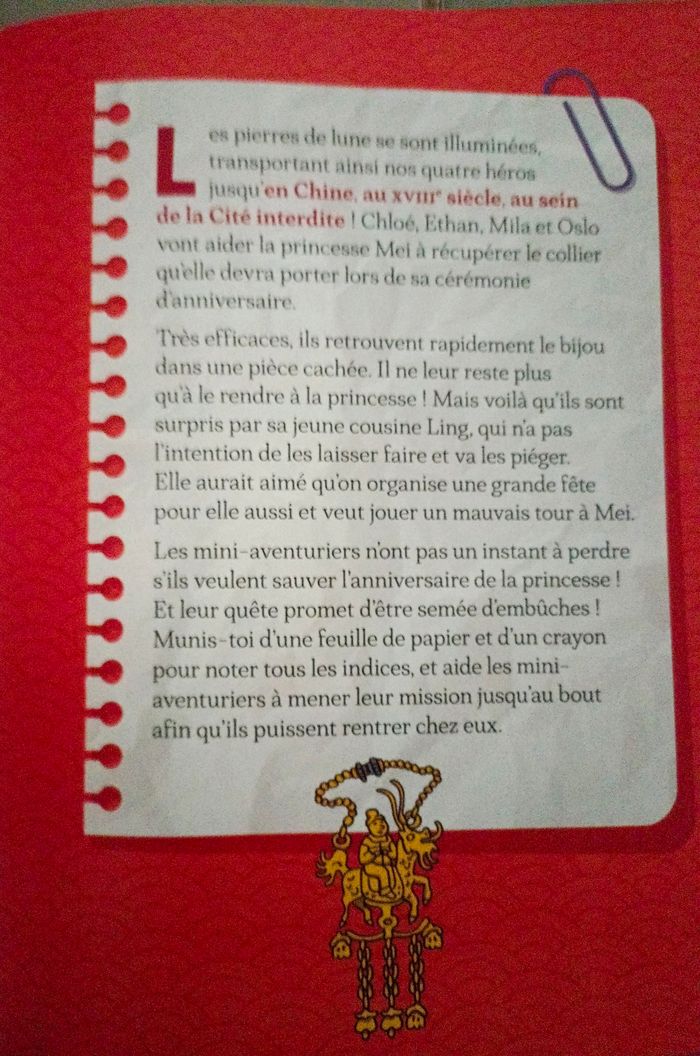 Les pierres de lune se sont illuminées,
transportant ainsi nos quatre héros
jusqu'en Chine, au XVIIIᵉ siècle, au sein
de la Cité interdite ! Chloé, Ethan, Mila et Oslo
vont aider la princesse Mei à récupérer le collier
qu'elle devra porter lors de sa cérémonie
d'anniversaire.
Très efficaces, ils retrouvent rapidement le bijou
dans une pièce cachée. Il ne leur reste plus
qu'à le rendre à la princesse ! Mais voilà qu'ils sont
surpris par sa jeune cousine Ling, qui n'a pas
l'intention de les laisser faire et va les piéger.
Elle aurait aimé qu'on organise une grande fête
pour elle aussi et veut jouer un mauvais tour à Mei.
Les mini-aventuriers n'ont pas un instant à perdre
s'ils veulent sauver l'anniversaire de la princesse !
Et leur quête promet d'être semée d'embûches !
Munis-toi d'une feuille de papier et d'un crayon
pour noter tous les indices, et aide les mini-
aventuriers à mener leur mission jusqu'au bout
afin qu'ils puissent rentrer chez eux.